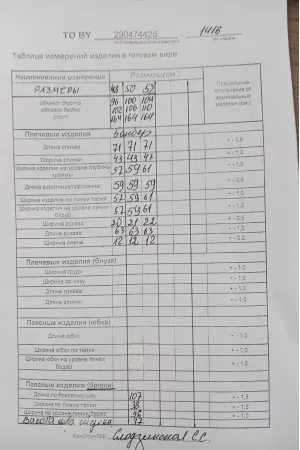 ТО BY 290474425 . - 1416
Таблица измерений изделия в готовом виде
Наименование измерения Размеры (см.) Предельные отклонения от номинальных величин (см.)
РАЗМЕРЫ 48 50 52
обхват груди 96 100 104
обхват бедер 102 106 110
рост 164 164 164
Плечевые изделия Бомбер
Длина спинки 71 71 71 + - 1,0
Ширина спинки 43 43 43 + - 1,0
Ширина изделия на уровне глубины проймы 57 59 61 + - 1,0
Длина воротника/горловины 59 59 59 + - 0,5
Ширина изделия по линии талии 57 59 61 + - 1,0
Ширина изделия на уровне линии бедер 57 59 61 + - 1,0
Ширина рукава 20 21 22 + - 0,5
Длина рукава 63 63 63 + - 1,0
Ширина плеча 12 12 12 + - 0,2
Плечевые изделия (блуза)
Ширина груди + - 1,0
Ширина по низу + - 1,0
Длина рукава + - 1,0
Длина спинки + - 1,5
Поясные изделия (юбка)
Длина юбки + - 1,0
Ширина юбки по талии + - 1,0
Ширина юбки на уровне линии бедер + - 1,0
Поясные изделия (брюки)
Длина по боковому шву 107 + - 1,5
Ширина по линии талии 38 + - 1,0
Ширина на уровне линии бедер 56 + - 1,0
Высота 37
Конструктор